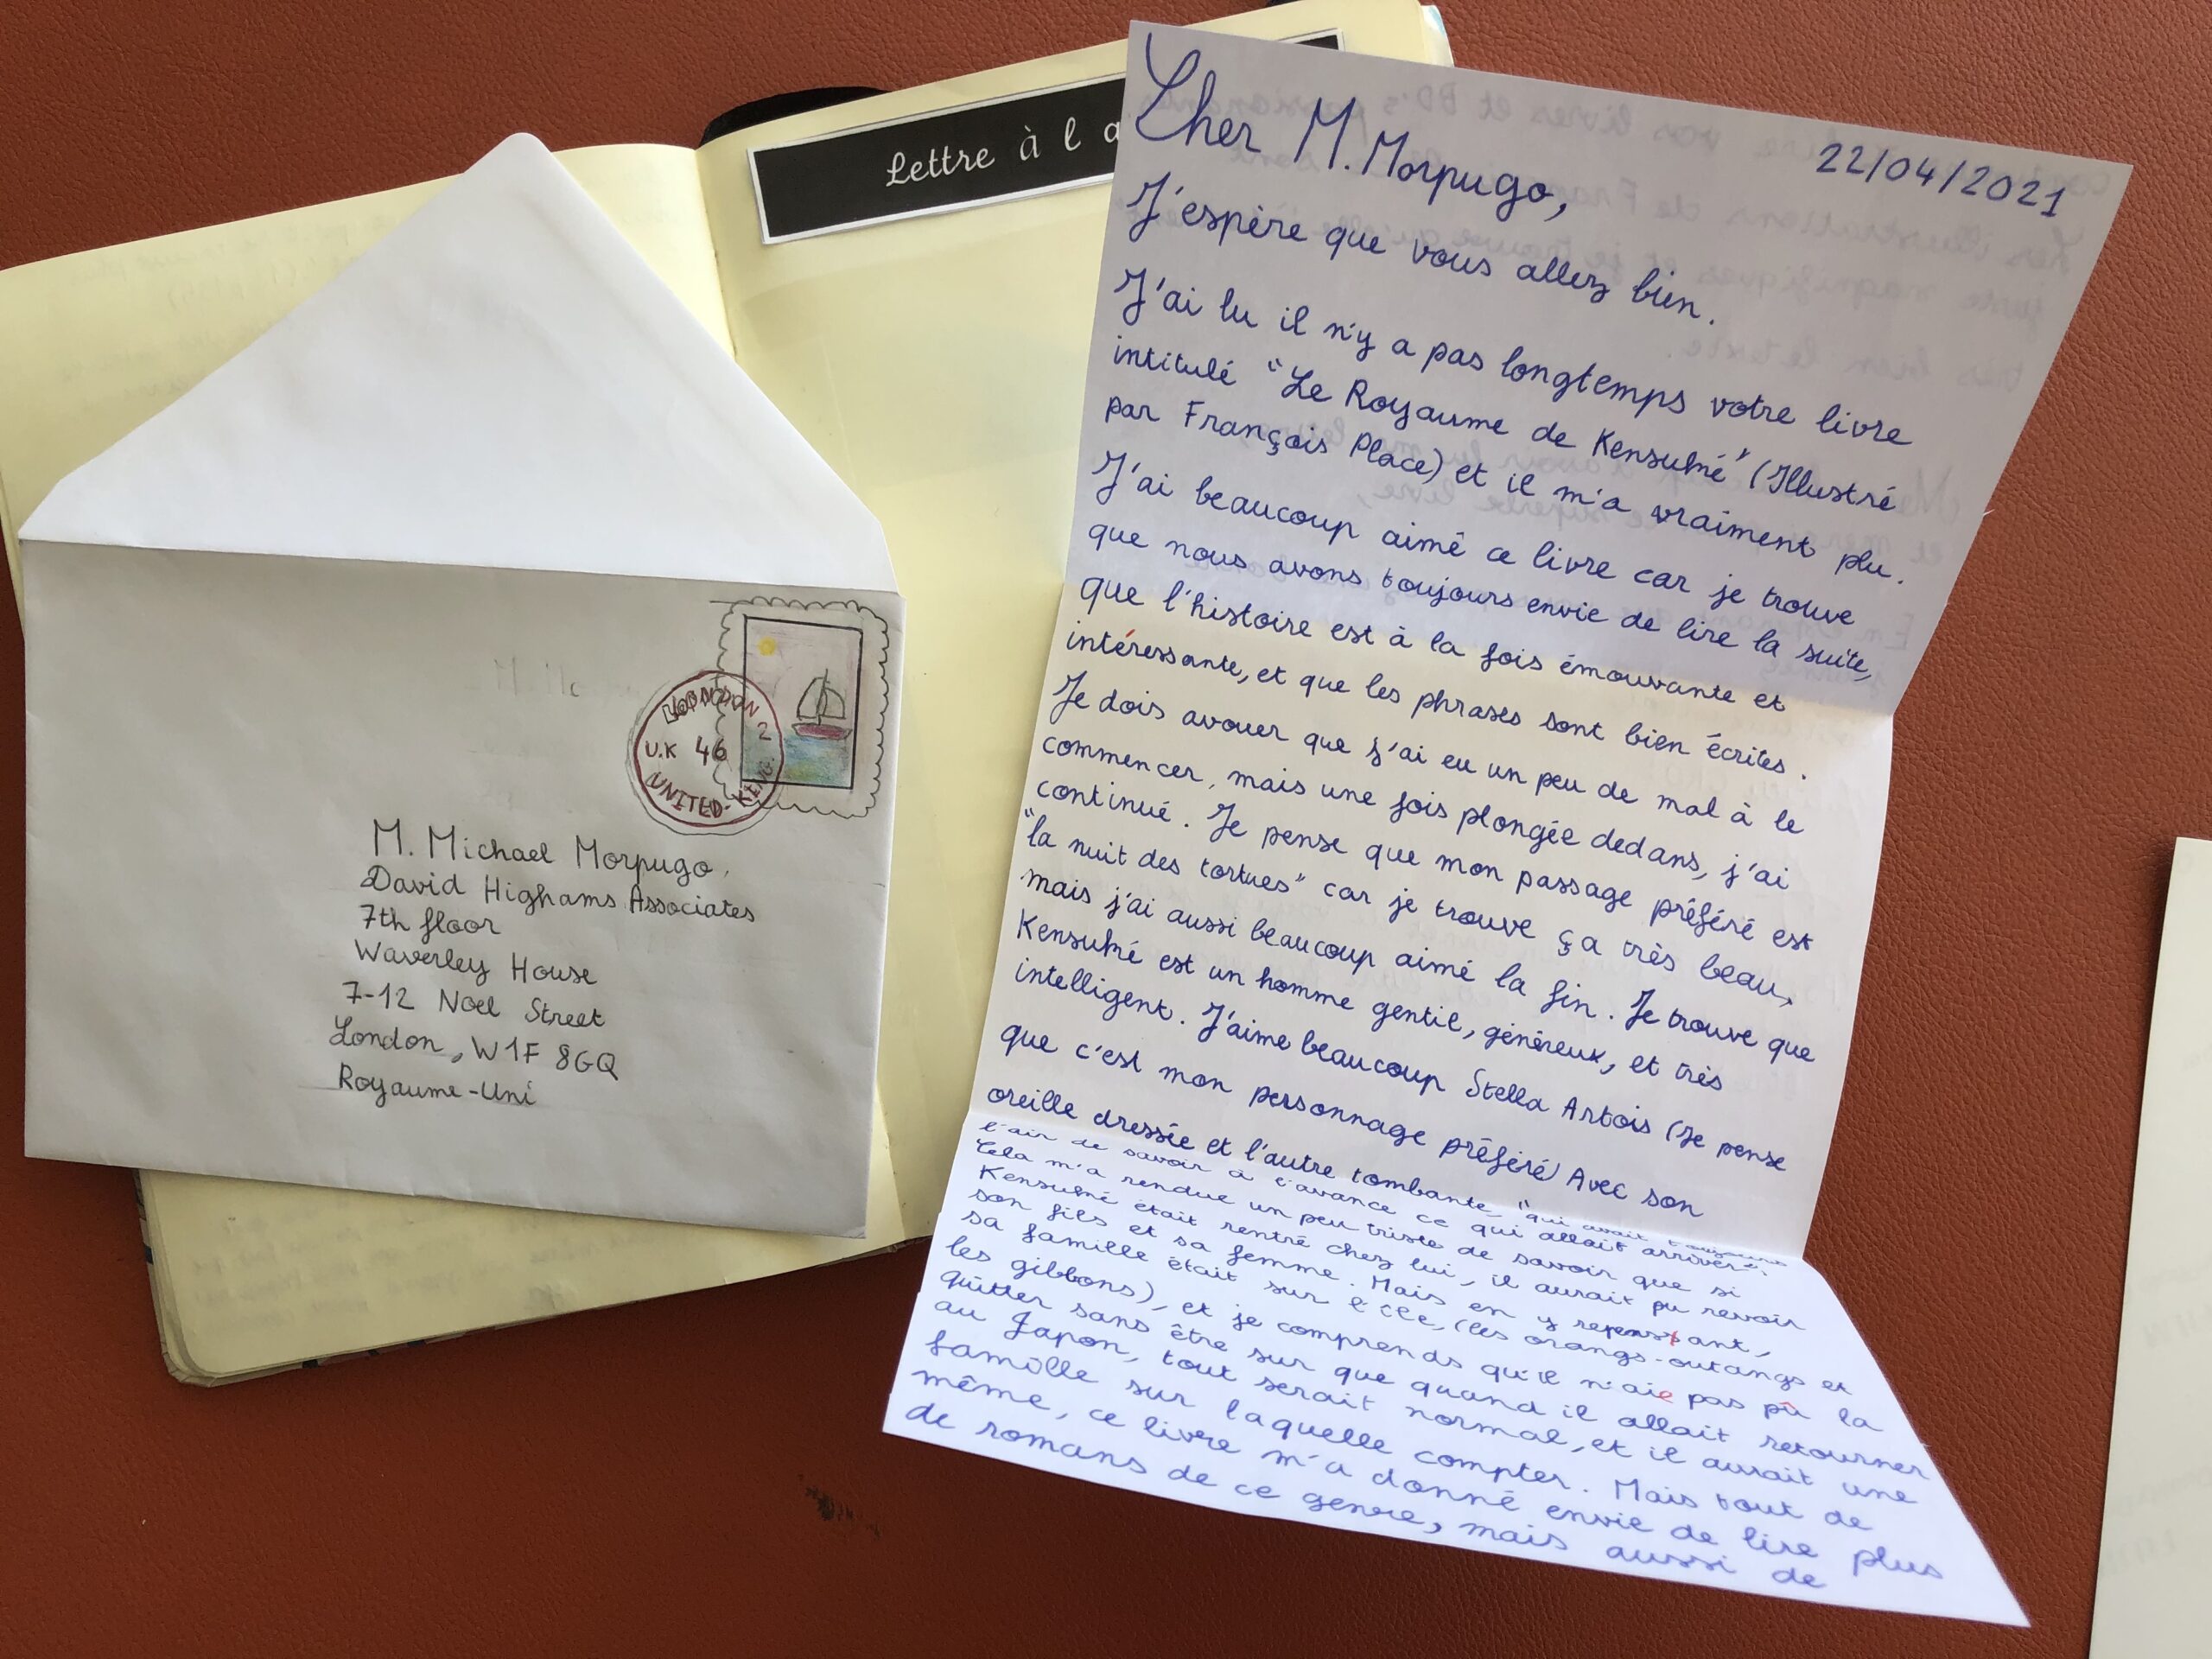 Lettre à l a
Cher M. Morpugo,
22/04/2021
J'espère que vous allez bien.
J'ai lu il n'y a pas longtemps votre livre
intitulé "Le Royaume de Kensuké" (Illustré
par François Place) et il m'a vraiment plu.
J'ai beaucoup aimé ce livre car je trouve
que nous avons toujours envie de lire la suite,
que l'histoire est à la fois émouvante et
intéressante, et que les phrases sont bien écrites.
Je dois avouer que j'ai eu un peu de mal à le
commencer, mais une fois plongée dedans, j'ai
continué. Je pense que mon passage préféré est
"la nuit des tortues" car je trouve ça très beau,
mais j'ai aussi beaucoup aimé la fin. Je trouve que
Kensuké est un homme gentil, généreux, et très
intelligent. J'aime beaucoup Stella Artois (Je pense
que c'est mon personnage préféré) Avec son
oreille dressée et l'autre tombante, "qui avait toujours
l'air de savoir à l'avance ce qui allait arriver".
Cela m'a rendue un peu triste de savoir que si
Kensuké était rentré chez lui, il aurait pu revoir
son fils et sa femme. Mais en y repensant,
sa famille était sur l'île, (les orangs-outangs et
les gibbons), et je comprends qu'il n'aie pas pû la
quitter sans être sur que quand il allait retourner
au Japon, tout serait normal, et il aurait une
famille sur laquelle compter. Mais tout de
même, ce livre m'a donné envie de lire plus
de romans de ce genre, mais aussi de
LONDON 2
U.K 46
UNITED-KING
M. Michael Morpugo,
David Highams Associates
7th floor
Waverley House
7-12 Noel Street
London, W1F 8GQ
Royaume-Uni